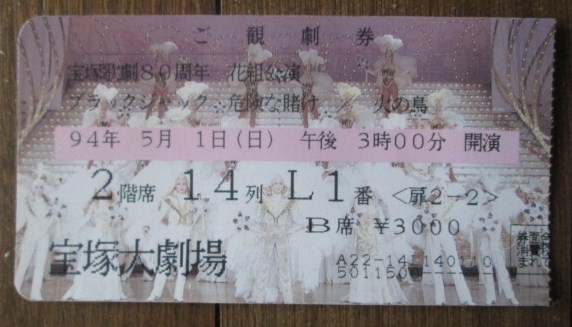 ご観劇券
宝塚歌劇80周年 花組公演
ブラックジャック 危険な賭け / 火の鳥
94年 5月 1日(日) 午後 3時00分 開演
2階席 14列 L1番 <扉2-2>
B席 ¥3000
宝塚大劇場
A22-14-140110
501150